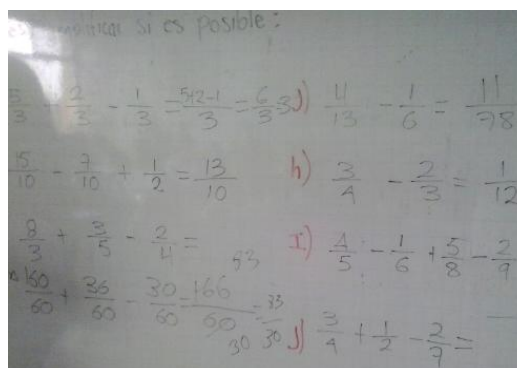 simplificar si es posible:
5/3 - 2/3 - 1/3 = 5+2-1/3 = 6/3
g) 4/13 - 1/6 = 11/78
15/10 - 7/10 + 1/2 = 13/10
h) 3/4 - 2/3 = 1/12
8/3 + 3/5 - 2/4 =
i) 4/5 - 1/6 + 5/8 - 2/9
160/60 + 36/60 - 30/60 = 166/60 = 33/30
j) 3/4 + 1/2 - 2/7 =